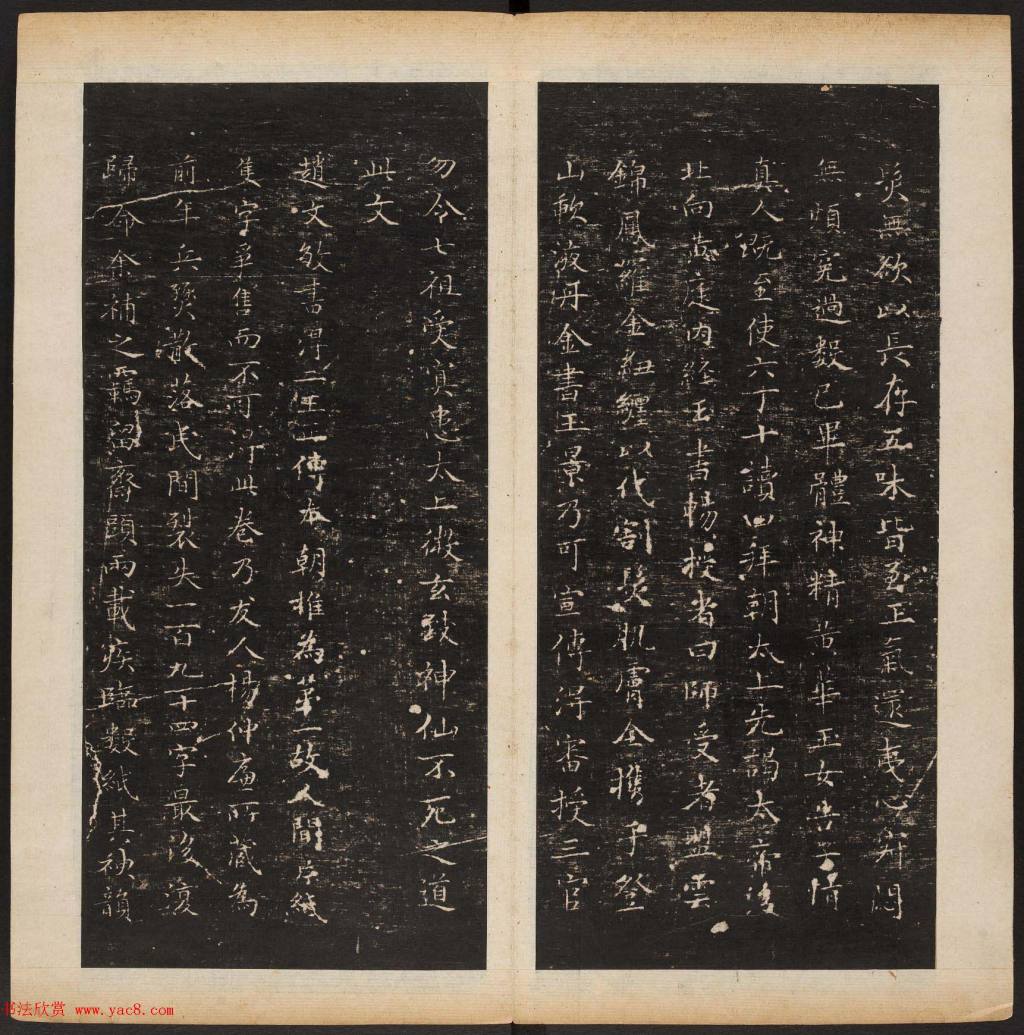 炎無欲以長存五味皆至正氣還夷心寂悶
無煩冤過數已畢體神精黃華玉女告子情
真人既至使六丁十讀四拜朝太上先謁太帝後
北向黃庭內經玉書暢授者曰師受者盟雲
錦鳳羅金紐纏以代割髮肌膚全攜手登
山歃液丹金書玉景乃可宣傳得審授三官
勿令七祖受冥患太上微玄致神仙不死之道
此文
趙文敏書得二王正傳本朝推為第一故人間片紙
隻字爭售而不可得此卷乃友人楊仲廉所藏為
前年兵燹散落民間裂失一百九十四字最後復
歸命余補之羈留齋頤兩載疾臨數紙其神韻
书法欣赏 www.yac8.com